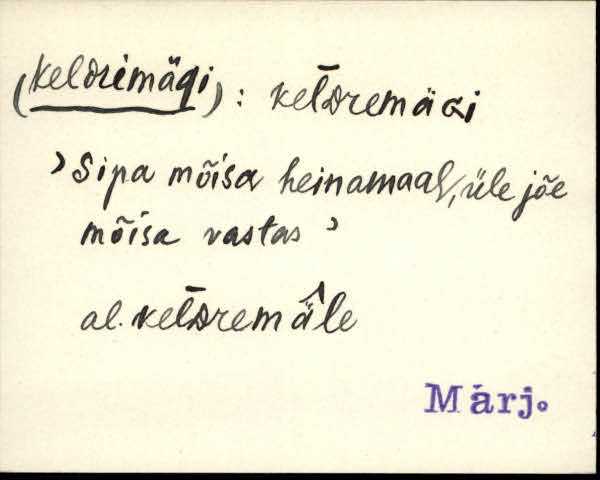 (keldrimägi): kel̄DremäGi
› Sipa mõisa heinamaal, üle jõe
mõisa vastas ›
al. kel̄Dremä̂le
Märj.